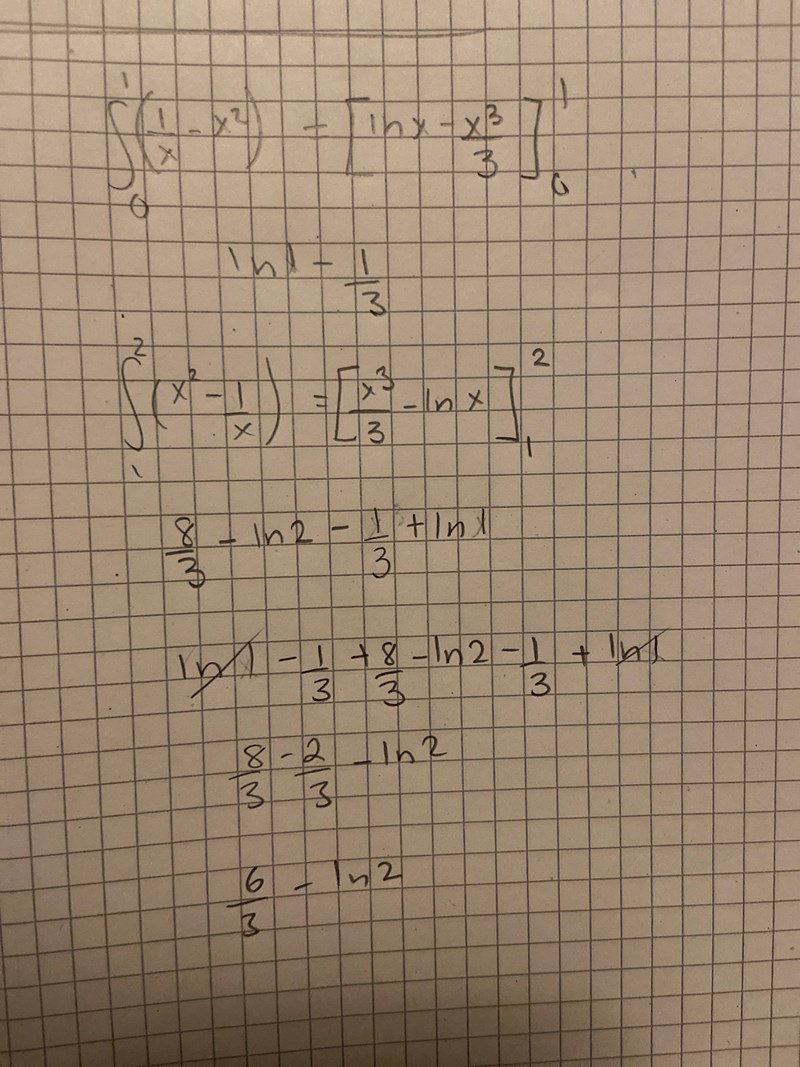 ∫₀¹ (1/x - x²) = [ln x - x³/3]₀¹
ln1 - 1/3
∫₁² (x² - 1/x) = [x³/3 - ln x]₁²
8/3 - ln2 - 1/3 + ln1
ln1 - 1/3 + 8/3 - ln2 - 1/3 + ln1
8/3 - 2/3 - ln2
6/3 - ln2